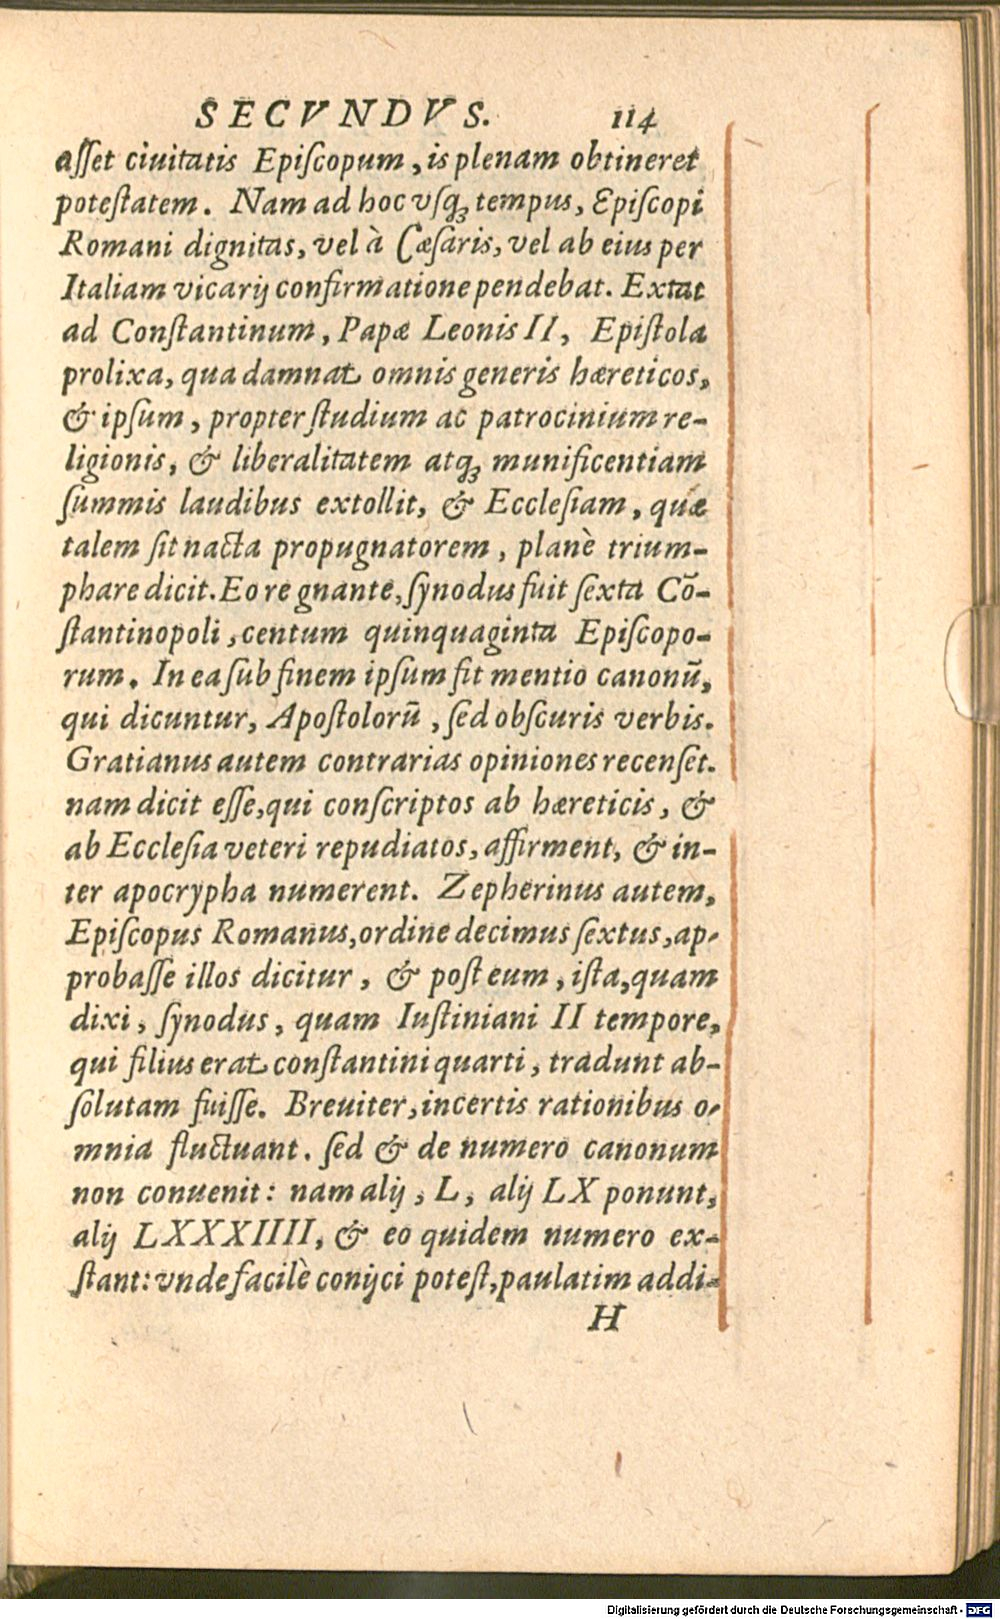 SECVNDVS. 114
asſet ciuitatis Epiſcopum, is plenam obtineret
poteſtatem. Nam ad hoc vſqꝫ tempus, Epiſcopi
Romani dignitas, vel à Cæſaris, vel ab eius per
Italiam vicarij confirmatione pendebat. Extat
ad Conſtantinum, Papæ Leonis II, Epiſtola
prolixa, qua damnat omnis generis hæreticos,
& ipſum, propter ſtudium ac patrocinium re-
ligionis, & liberalitatem atqꝫ munificentiam
ſummis laudibus extollit, & Eccleſiam, quæ
talem ſit nacta propugnatorem, planè trium-
phare dicit. Eo regnante, ſynodus fuit ſexta Cõ-
ſtantinopoli, centum quinquaginta Epiſcopo-
rum. In ea ſub finem ipſum fit mentio canonũ,
qui dicuntur, Apoſtolorũ, ſed obſcuris verbis.
Gratianus autem contrarias opiniones recenſet.
nam dicit eſſe, qui conſcriptos ab hæreticis, &
ab Eccleſia veteri repudiatos, affirment, & in-
ter apocrypha numerent. Zepherinus autem,
Epiſcopus Romanus, ordine decimus ſextus, ap-
probaſſe illos dicitur, & poſt eum, iſta, quam
dixi, ſynodus, quam Iuſtiniani II tempore,
qui filius erat conſtantini quarti, tradunt ab-
ſolutam fuiſſe. Breuiter, incertis rationibus o-
mnia fluctuant. ſed & de numero canonum
non conuenit: nam alij, L, alij LX ponunt,
alij LXXXIIII, & eo quidem numero ex-
ſtant: vnde facilè conijci poteſt, paulatim addi-
H
Digitalisierung gefördert durch die Deutsche Forschungsgemeinschaft - DFG